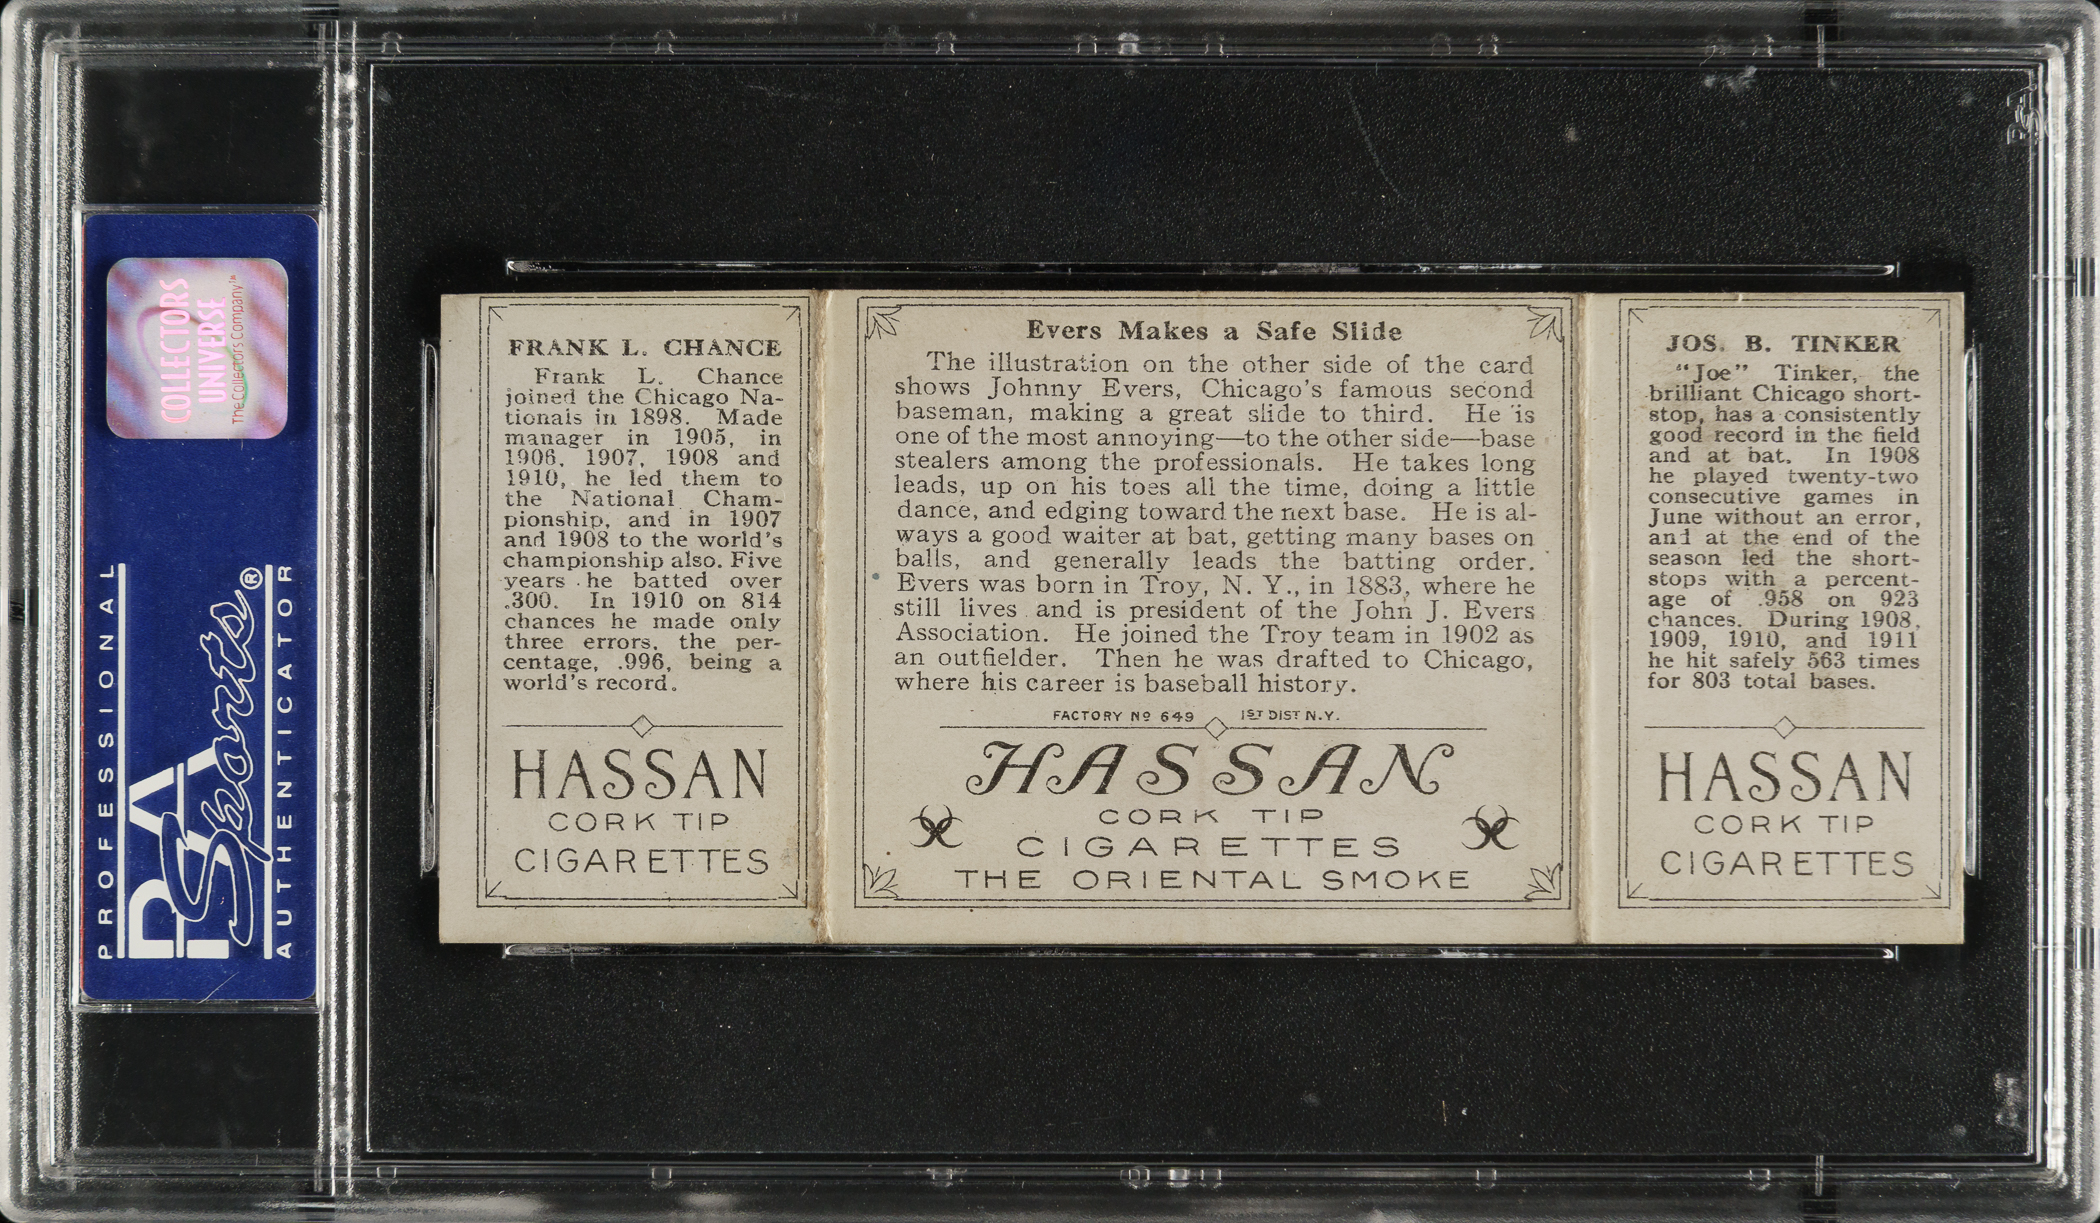 COLLECTORS
UNIVERSE
The Collectors Company™
PROFESSIONAL
PSA
Sports®
AUTHENTICATOR
FRANK L. CHANCE
Frank L. Chance
joined the Chicago Na-
tionals in 1898. Made
manager in 1905, in
1906, 1907, 1908 and
1910, he led them to
the National Cham-
pionship, and in 1907
and 1908 to the world's
championship also. Five
years he batted over
.300. In 1910 on 814
chances he made only
three errors, the per-
centage, .996, being a
world's record.
HASSAN
CORK TIP
CIGARETTES
Evers Makes a Safe Slide
The illustration on the other side of the card
shows Johnny Evers, Chicago's famous second
baseman, making a great slide to third. He is
one of the most annoying—to the other side—base
stealers among the professionals. He takes long
leads, up on his toes all the time, doing a little
dance, and edging toward the next base. He is al-
ways a good waiter at bat, getting many bases on
balls, and generally leads the batting order.
Evers was born in Troy, N. Y., in 1883, where he
still lives and is president of the John J. Evers
Association. He joined the Troy team in 1902 as
an outfielder. Then he was drafted to Chicago,
where his career is baseball history.
FACTORY Nº 649 1ST DIST N.Y.
HASSAN
CORK TIP
CIGARETTES
THE ORIENTAL SMOKE
JOS. B. TINKER
"Joe" Tinker, the
brilliant Chicago short-
stop, has a consistently
good record in the field
and at bat. In 1908
he played twenty-two
consecutive games in
June without an error,
and at the end of the
season led the short-
stops with a percent-
age of .958 on 923
chances. During 1908,
1909, 1910, and 1911
he hit safely 563 times
for 803 total bases.
HASSAN
CORK TIP
CIGARETTES
PSA